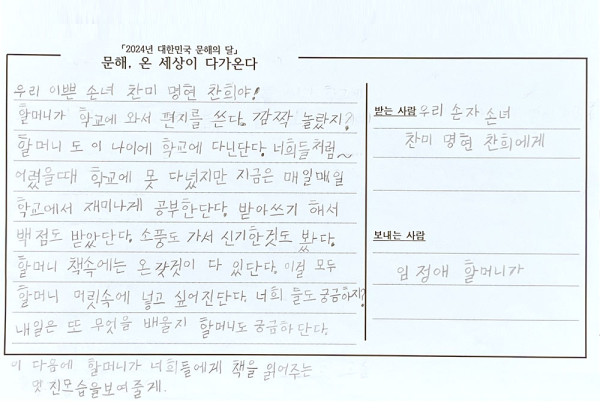 「2024년 대한민국 문해의 달」
문해, 온 세상이 다가온다
우리 이쁜 손녀 찬미 명현 찬희야!
할머니가 학교에 와서 편지를 쓴다. 깜짝 놀랐지?
할머니 도 이 나이에 학교에 다닌단다. 너희들처럼~
어렸을때 학교에 못 다녔지만 지금은 매일매일
학교에서 재미나게 공부한단다. 받아쓰기 해서
백점도 받았단다. 소풍도 가서 신기한것도 봤다.
할머니 책속에는 온갖것이 다 있단다. 이걸 모두
할머니 머릿속에 넣고 싶어진단다. 너희 들도 궁금하지?
내일은 또 무엇을 배울지 할머니도 궁금하 단다.
이 다음에 할머니가 너희들에게 책을 읽어주는
멋 진모습을보여줄게.
받는 사람 우리 손자 손녀
찬미 명현 찬희에게
보내는 사람
임정애 할머니가